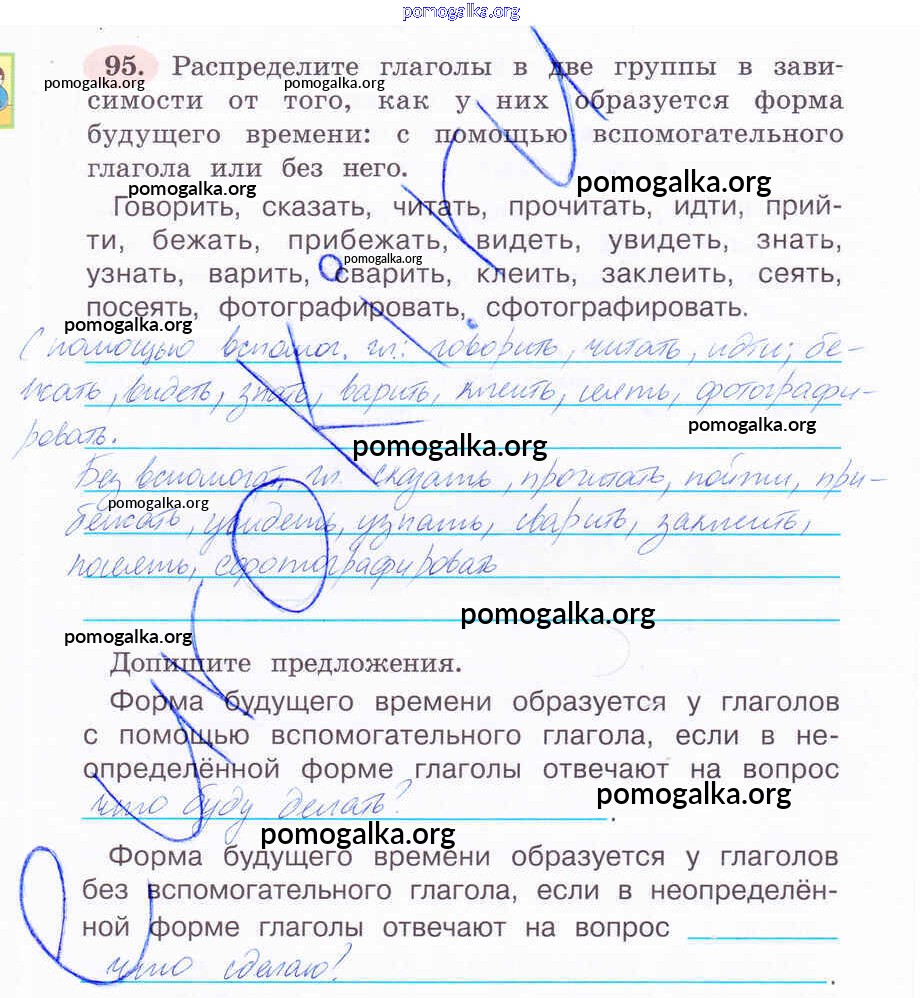 pomogalka.org
95. Распределите глаголы в две группы в зави-
pomogalka.org pomogalka.org pomogalka.org
симости от того, как у них образуется форма
будущего времени: с помощью вспомогательного
глагола или без него.
pomogalka.org pomogalka.org
Говорить, сказать, читать, прочитать, идти, прий-
ти, бежать, прибежать, видеть, увидеть, знать,
pomogalka.org
узнать, варить, сварить, клеить, заклеить, сеять,
посеять, фотографировать, сфотографировать.
pomogalka.org
С помощью вспомог. гл.: говорить, читать, идти, бе-
жать, видеть, знать, варить, клеить, сеять, фотографи-
ровать.
pomogalka.org pomogalka.org
Без вспомогат. гл. сказать, прочитать, пойти, при-
pomogalka.org
бежать, увидеть, узнать, сварить, заклеить,
посеять, сфотографировать
pomogalka.org
pomogalka.org
Допишите предложения.
Форма будущего времени образуется у глаголов
с помощью вспомогательного глагола, если в не-
определённой форме глаголы отвечают на вопрос
что буду делать? .
pomogalka.org
pomogalka.org
Форма будущего времени образуется у глаголов
без вспомогательного глагола, если в неопределён-
ной форме глаголы отвечают на вопрос
что сделаю? .
eurokI.ru